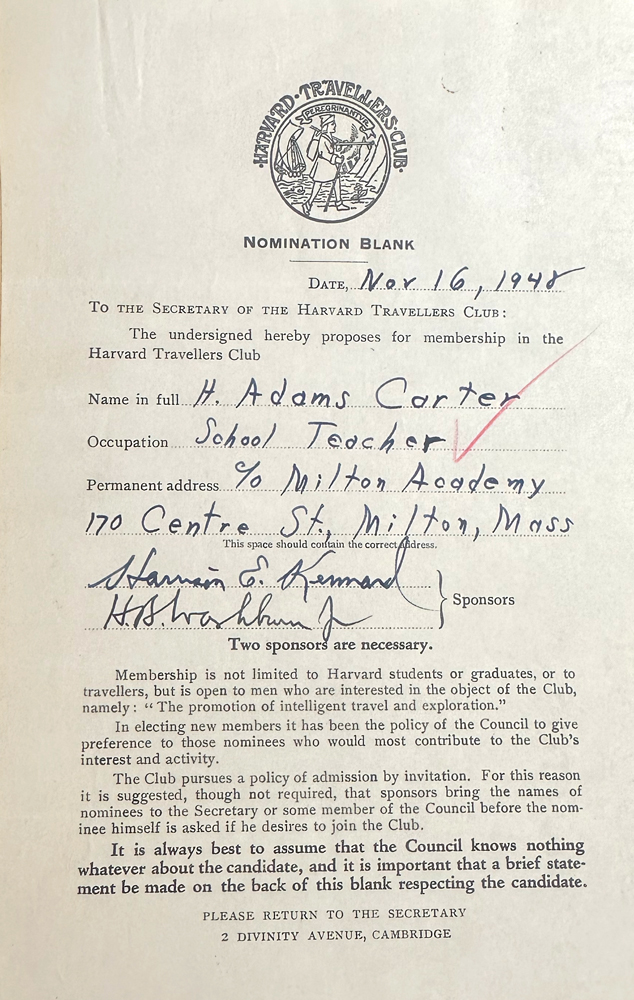 ·HARVARD·TRAVELLERS·CLUB·
PEREGRINANTVR
NOMINATION BLANK
DATE, Nov 16, 1948
TO THE SECRETARY OF THE HARVARD TRAVELLERS CLUB:
The undersigned hereby proposes for membership in the
Harvard Travellers Club
Name in full H. Adams Carter
Occupation School Teacher
Permanent address c/o Milton Academy
170 Centre St., Milton, Mass
This space should contain the correct address.
Harrison E. Kennard
H.B. Washburn Jr
Sponsors
Two sponsors are necessary.
Membership is not limited to Harvard students or graduates, or to
travellers, but is open to men who are interested in the object of the Club,
namely: “ The promotion of intelligent travel and exploration.”
In electing new members it has been the policy of the Council to give
preference to those nominees who would most contribute to the Club’s
interest and activity.
The Club pursues a policy of admission by invitation. For this reason
it is suggested, though not required, that sponsors bring the names of
nominees to the Secretary or some member of the Council before the nom-
inee himself is asked if he desires to join the Club.
It is always best to assume that the Council knows nothing
whatever about the candidate, and it is important that a brief state-
ment be made on the back of this blank respecting the candidate.
PLEASE RETURN TO THE SECRETARY
2 DIVINITY AVENUE, CAMBRIDGE